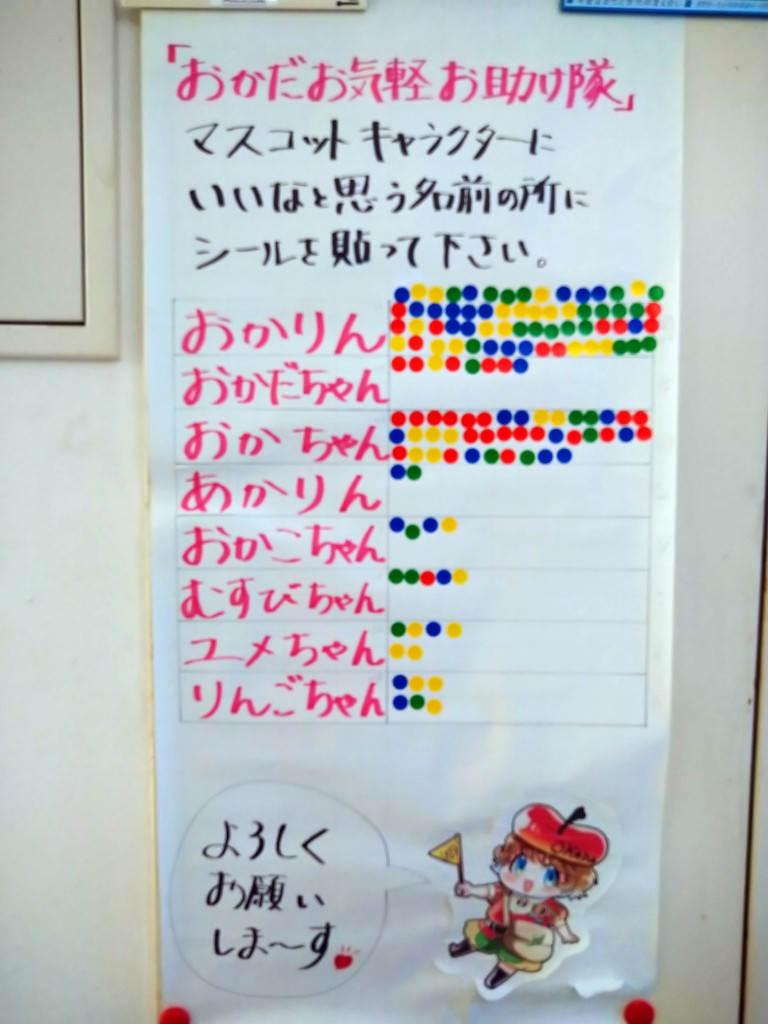 「おかだお気軽お助け隊」
マスコットキャラクターに
いいなと思う名前の所に
シールを貼って下さい。
おかりん
おかだちゃん
おかちゃん
あかりん
おかこちゃん
むすびちゃん
ユメちゃん
りんごちゃん
よろしく
お願い
しま〜す